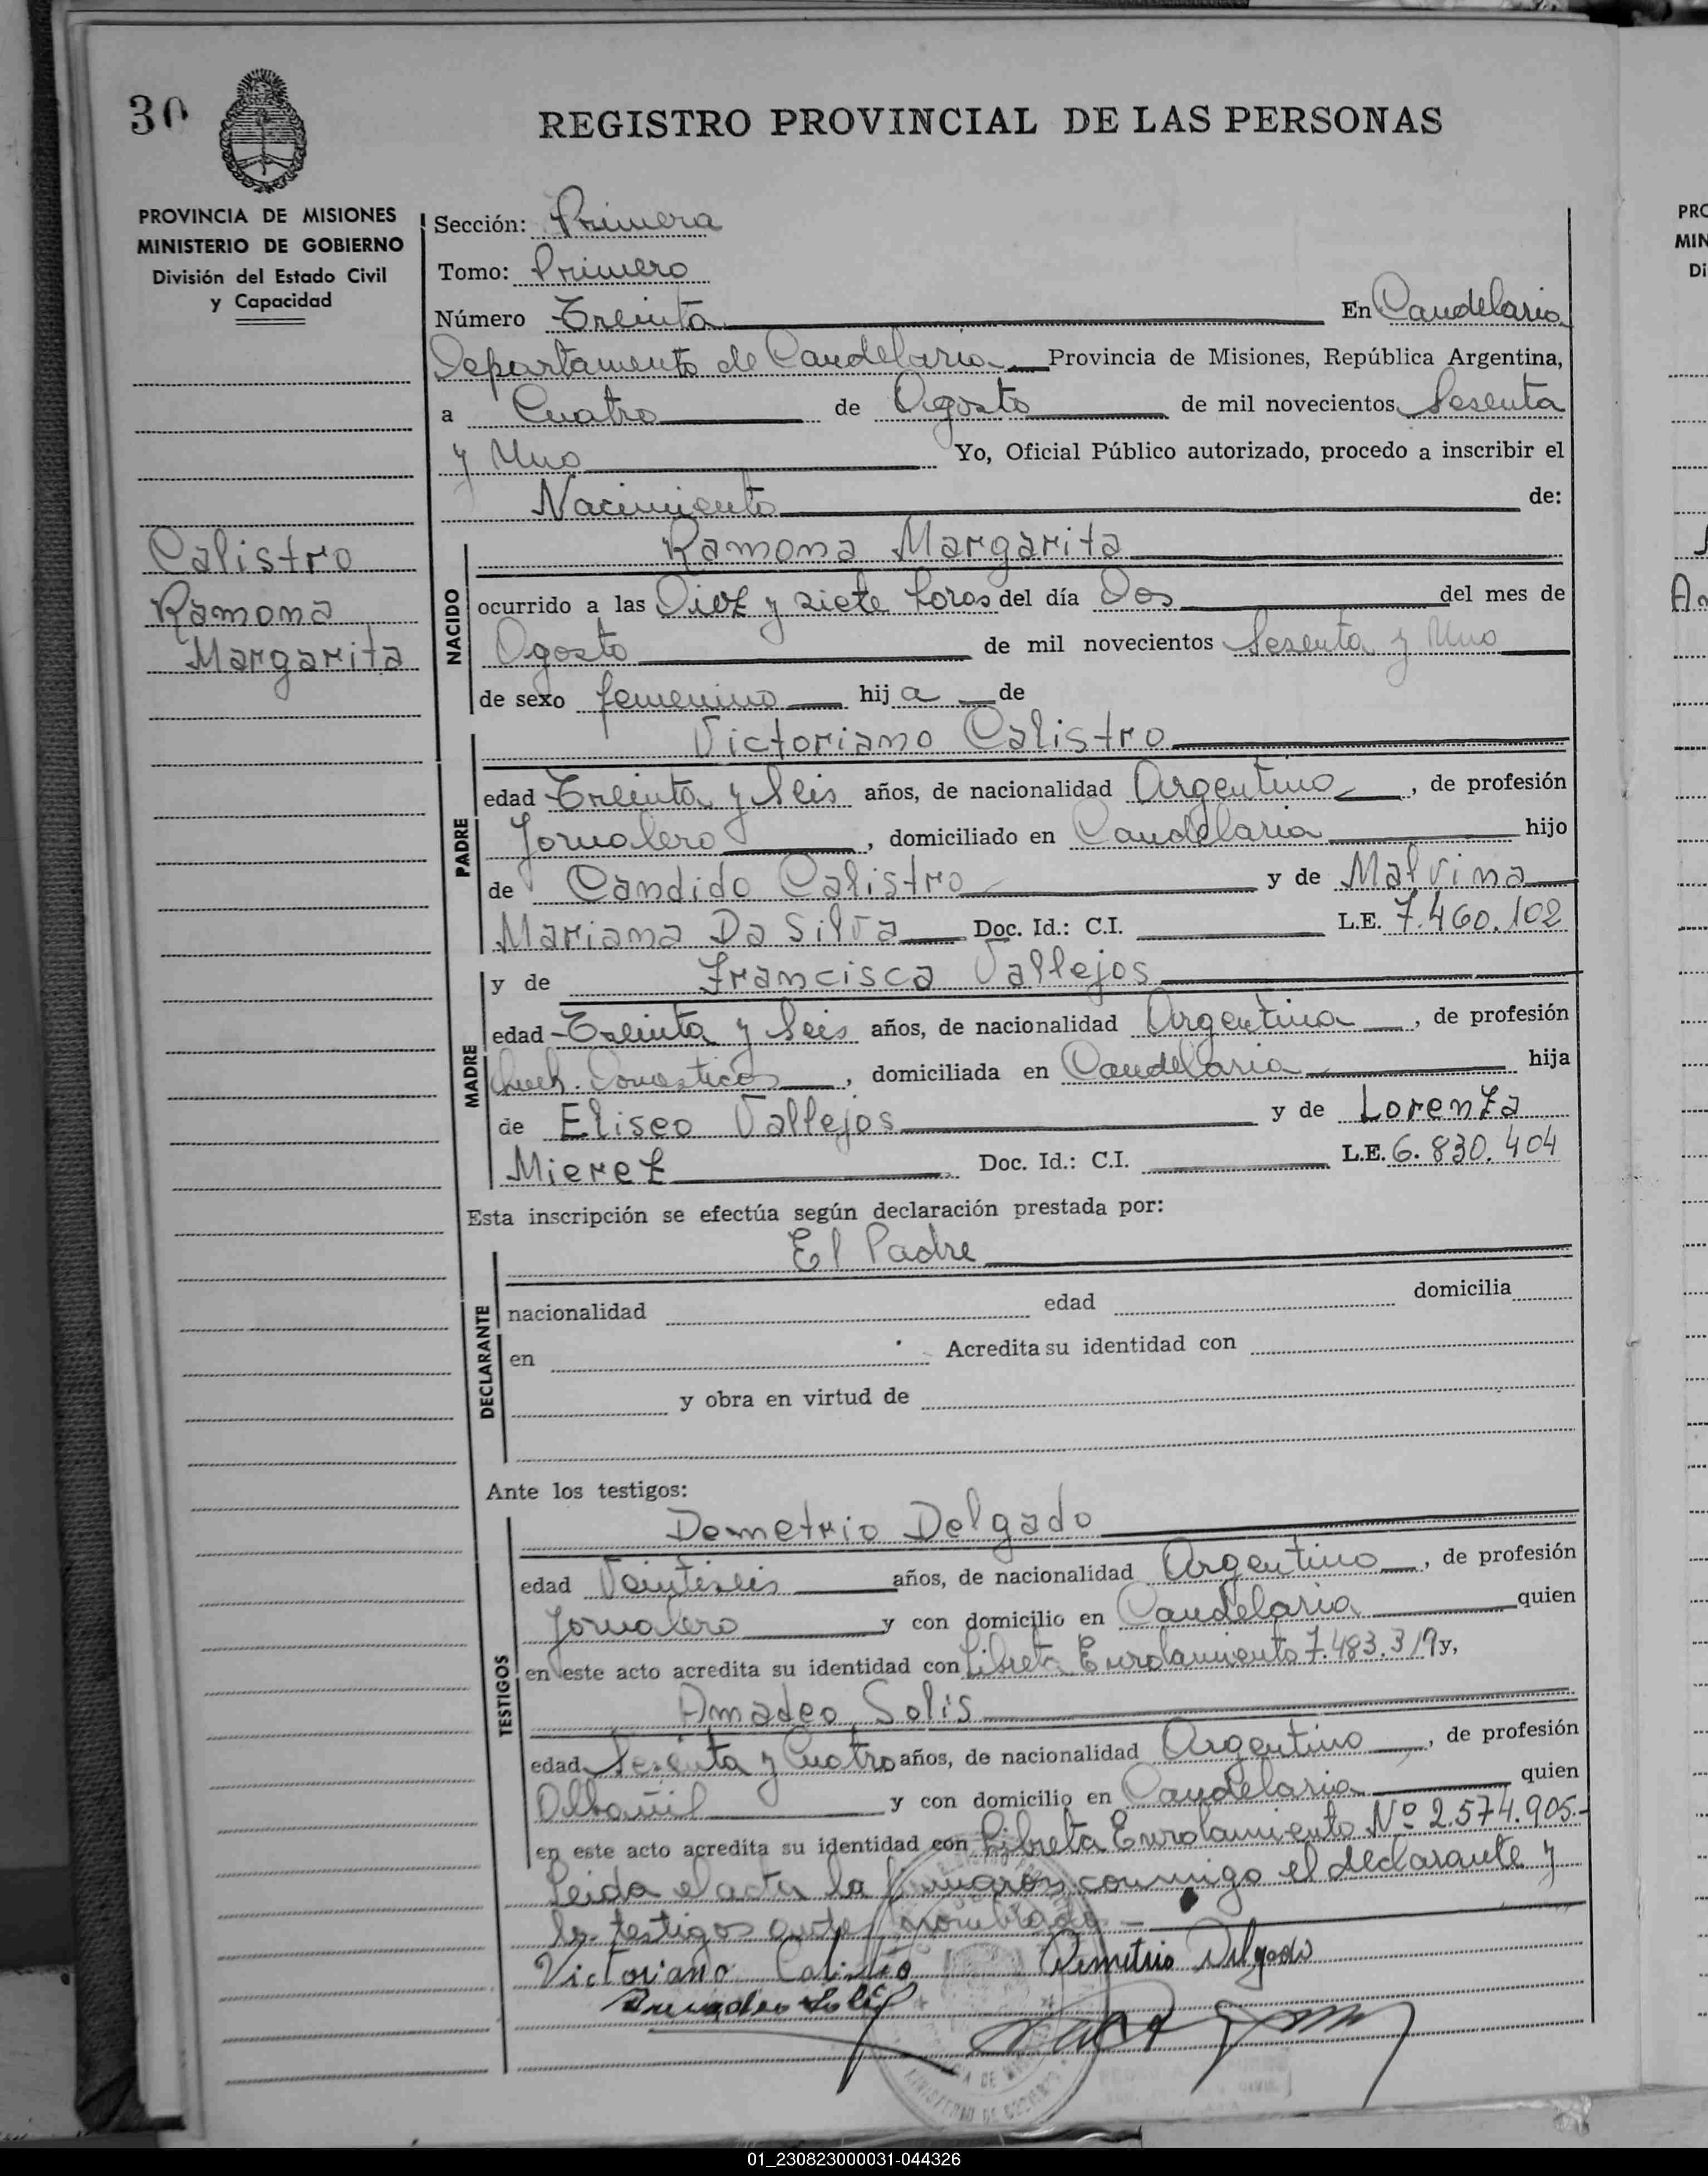 30
REGISTRO PROVINCIAL DE LAS PERSONAS
PROVINCIA DE MISIONES
MINISTERIO DE GOBIERNO
División del Estado Civil
y Capacidad
Calistro
Ramona
Margarita
Sección: Primera
Tomo: Primero
Número Treinta En Candelaria
Departamento de Candelaria Provincia de Misiones, República Argentina,
a Cuatro de Agosto de mil novecientos Sesenta
y Uno Yo, Oficial Público autorizado, procedo a inscribir el
Nacimiento de:
NACIDO
Ramona Margarita
ocurrido a las Diez y siete horas del día Dos del mes de
Agosto de mil novecientos Sesenta y Uno
de sexo femenino hij a de
PADRE
Victoriano Calistro
edad Treinta y Seis años, de nacionalidad Argentino, de profesión
Jornalero, domiciliado en Candelaria hijo
de Candido Calistro y de Malvina
Mariana Da Silva Doc. Id.: C.I. L.E. 7.460.102
MADRE
y de Francisca Vallejos
edad Treinta y Seis años, de nacionalidad Argentina, de profesión
Queh. Domesticos, domiciliada en Candelaria hija
de Eliseo Vallejos y de Lorenza
Mierez Doc. Id.: C.I. L.E. 6.830.404
Esta inscripción se efectúa según declaración prestada por:
DECLARANTE
El Padre
nacionalidad edad domicilia
en Acredita su identidad con
y obra en virtud de
Ante los testigos:
TESTIGOS
Demetrio Delgado
edad Veintiseis años, de nacionalidad Argentino, de profesión
Jornalero y con domicilio en Candelaria quien
en este acto acredita su identidad con Libreta Enrolamiento 7.483.319 y,
Amadeo Solis
edad Sesenta y Cuatro años, de nacionalidad Argentino, de profesión
Albañil y con domicilio en Candelaria quien
en este acto acredita su identidad con Libreta Enrolamiento Nº 2.574.905.-
Leida el acta la firmaron conmigo el declarante y
los testigos antes nombrados.-
Victoriano Calistro Demetrio Delgado
Amadeo Solis
MINISTERIO DE GOBIERNO
PRO
MIN
Di
01_230823000031-044326